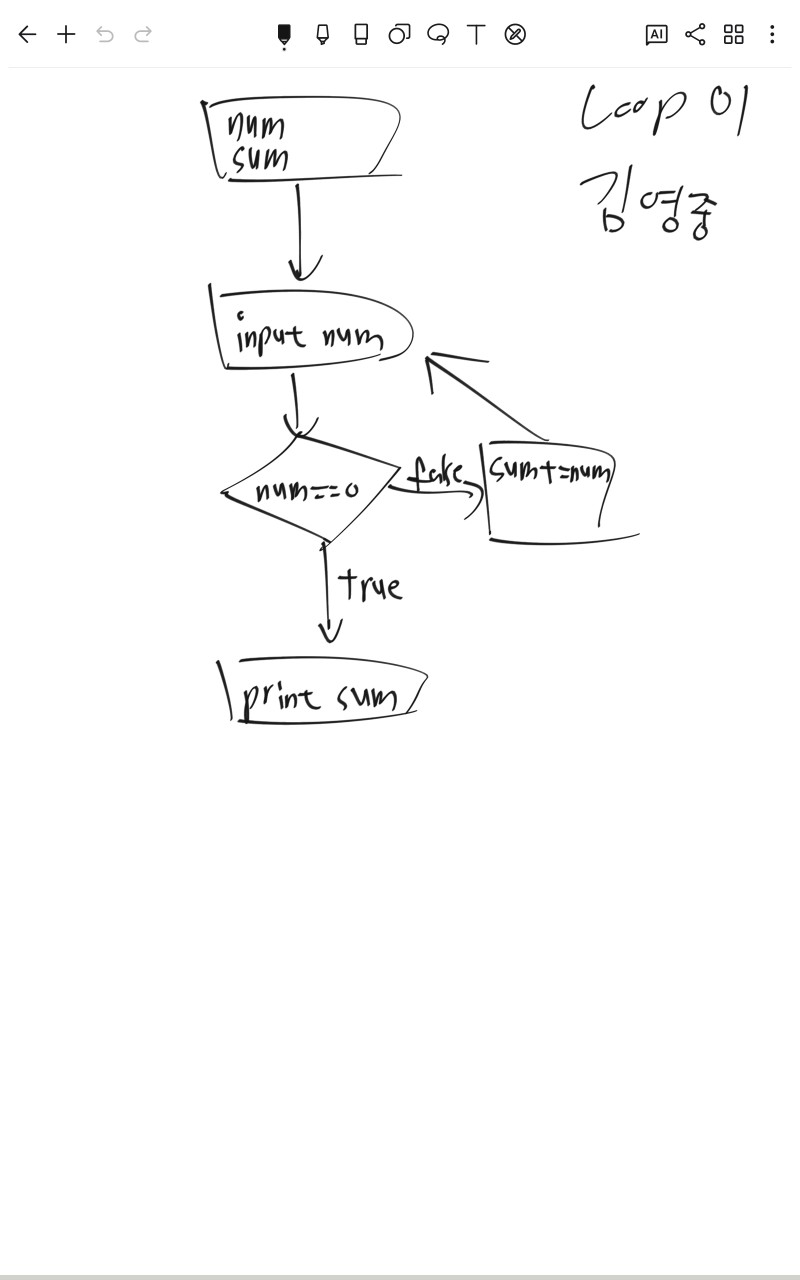 AI
Loop 01
김영중
num
sum
input num
num==0
false
sum+=num
true
print sum